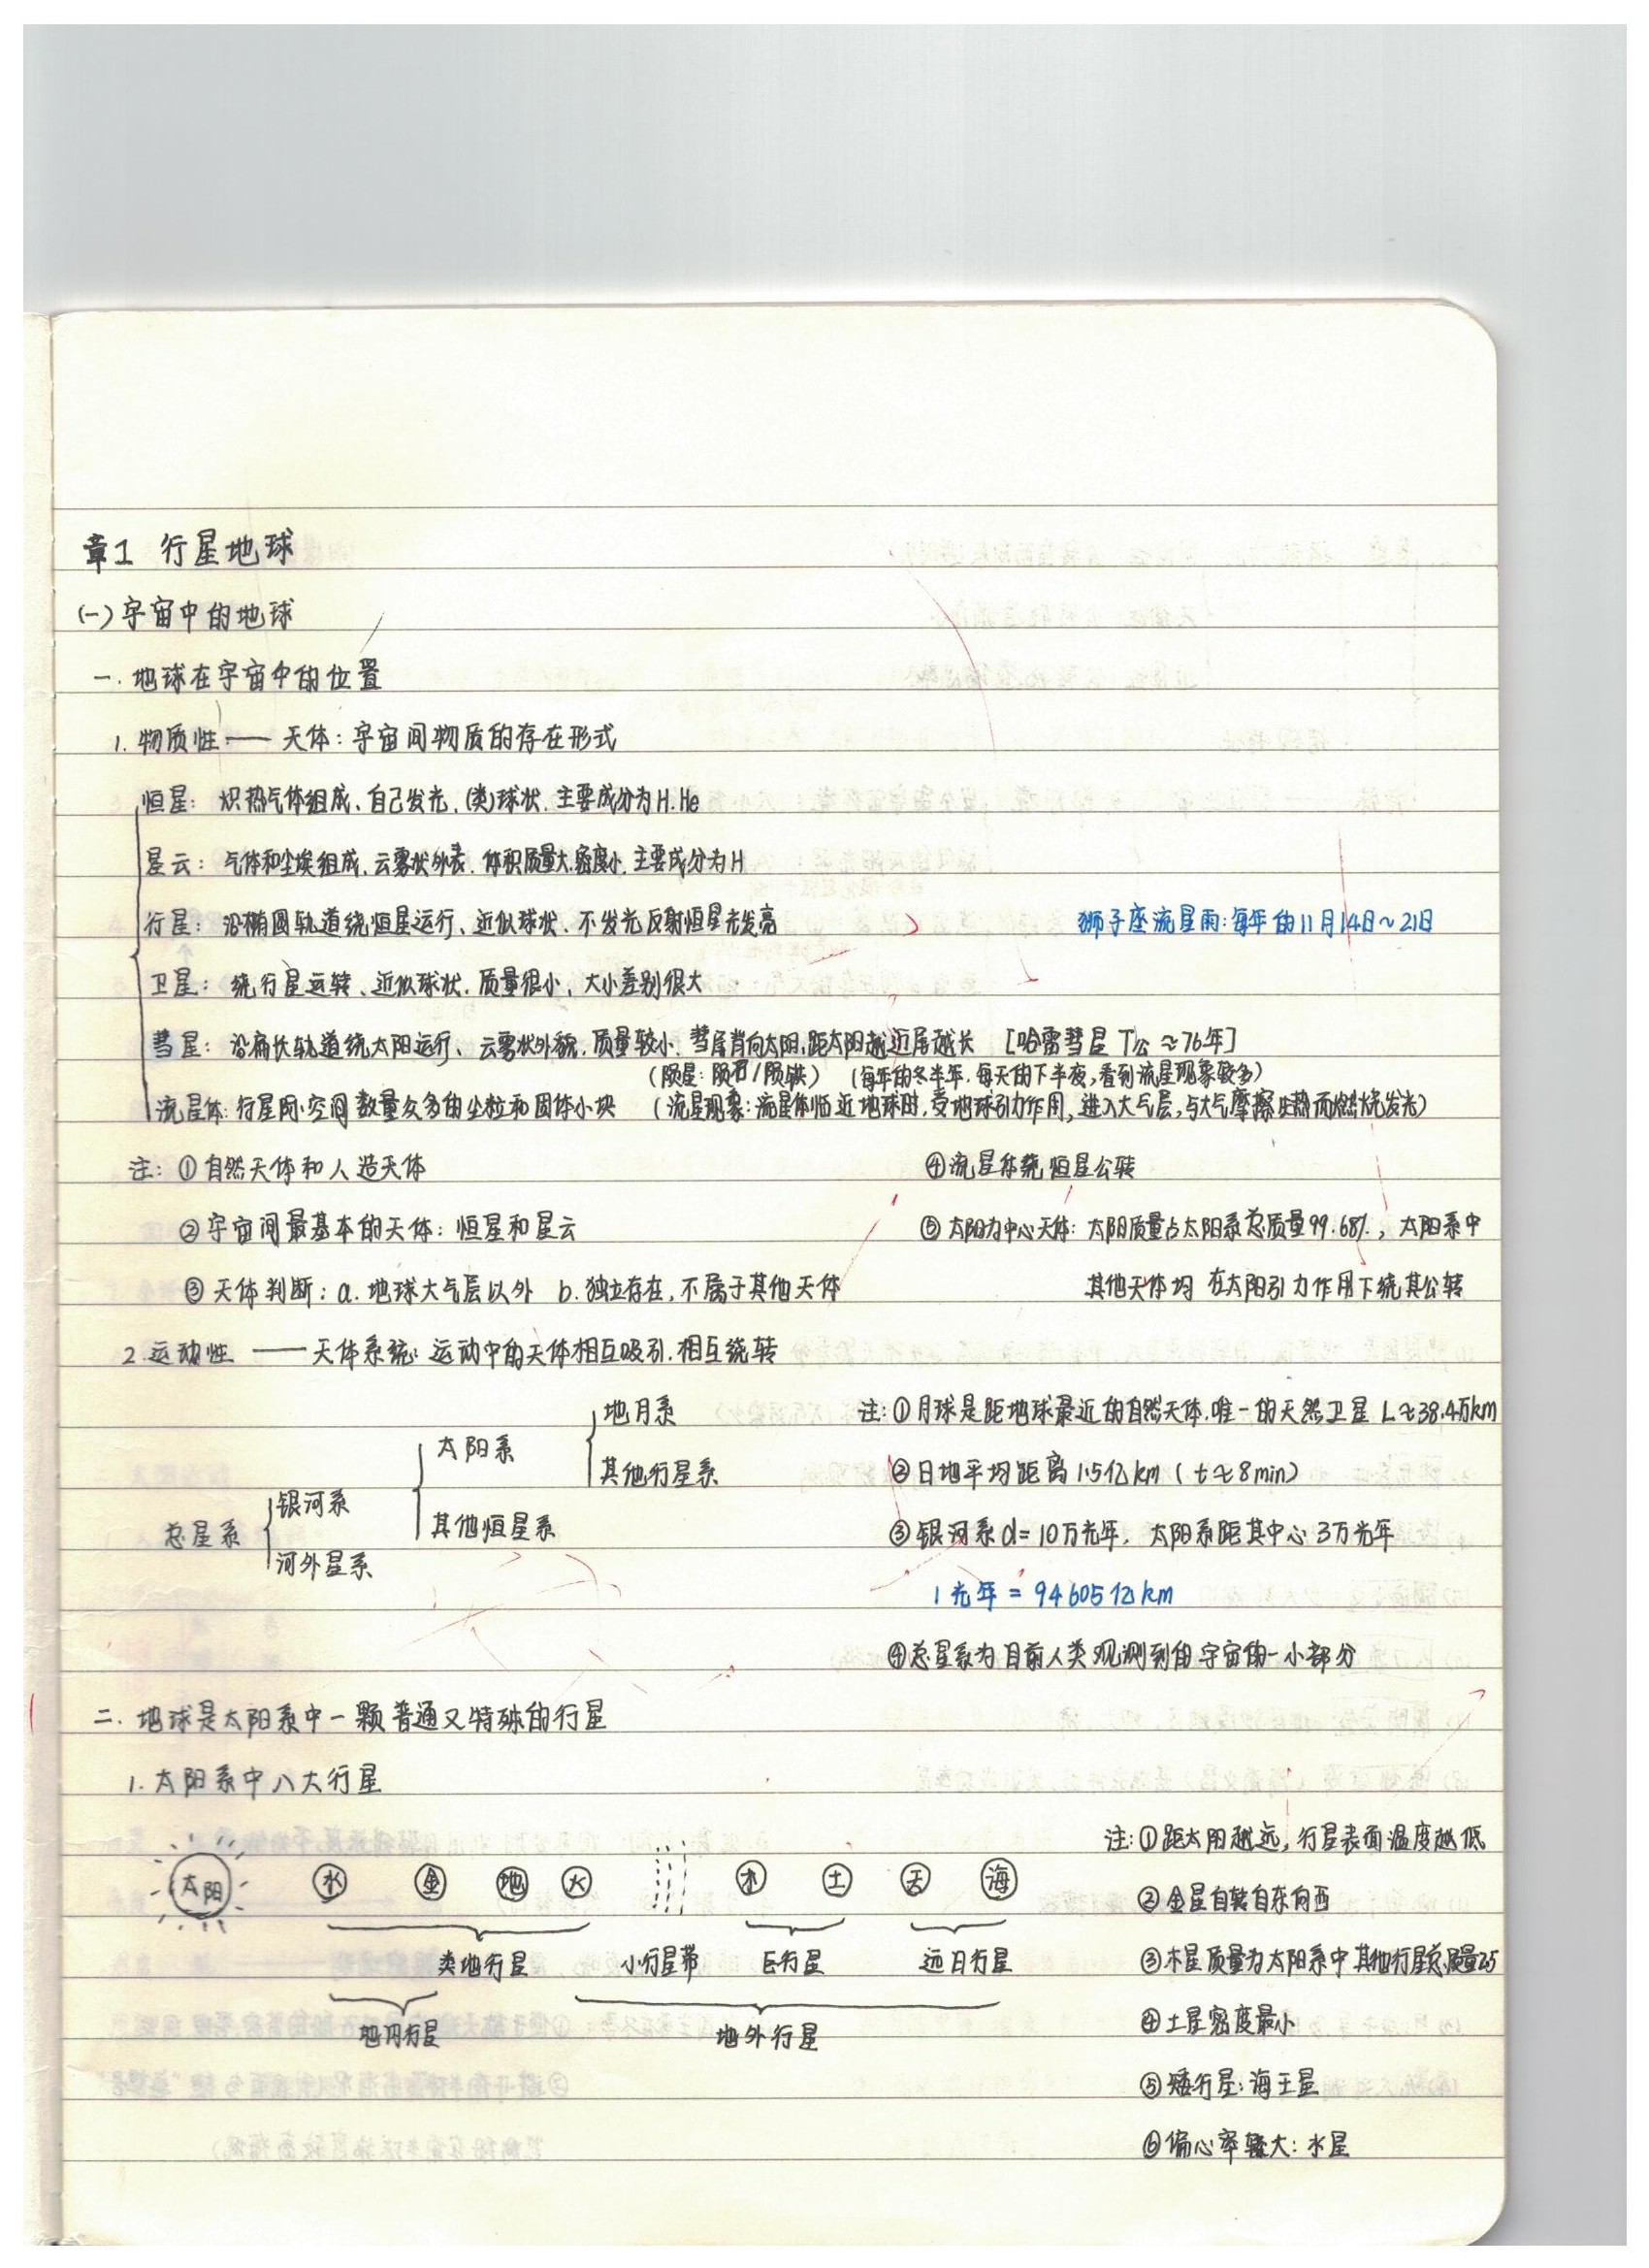 章1 行星地球
(一)宇宙中的地球
一.地球在宇宙中的位置
1.物质性 —— 天体:宇宙间物质的存在形式
恒星: 炽热气体组成、自己发光、(类)球状、主要成分为H.He
星云: 气体和尘埃组成、云雾状外表、体积质量大.密度小、主要成分为H
行星: 沿椭圆轨道绕恒星运行、近似球状、不发光反射恒星光发亮
狮子座流星雨:每年的11月14日~21日
卫星: 绕行星运转、近似球状、质量很小、大小差别很大
彗星: 沿扁长轨道绕太阳运行、云雾状外貌、质量较小、彗尾背向太阳,距太阳越近尾越长 [哈雷彗星 T公≈76年]
(陨星:陨石/陨铁) (每年的冬半年,每天的下半夜,看到流星现象较多)
流星体: 行星际空间数量众多的尘粒和固体小块 (流星现象:流星体临近地球时,受地球引力作用,进入大气层,与大气摩擦生热而燃烧发光)
注: ①自然天体和人造天体
②宇宙间最基本的天体: 恒星和星云
③天体判断: a.地球大气层以外 b.独立存在,不属于其他天体
④流星体绕恒星公转
⑤太阳为中心天体: 太阳质量占太阳系总质量99.68%, 太阳系中
其他天体均在太阳引力作用下绕其公转
2.运动性 —— 天体系统: 运动中的天体相互吸引.相互绕转
总星系
银河系
河外星系
太阳系
其他恒星系
地月系
其他行星系
注:①月球是距地球最近的自然天体.唯一的天然卫星 L≈38.4万km
②日地平均距离1.5亿km (t≈8min)
③银河系d=10万光年, 太阳系距其中心3万光年
1光年=94605亿km
④总星系为目前人类观测到的宇宙的一小部分
二.地球是太阳系中一颗普通又特殊的行星
1.太阳系中八大行星
太阳 水 金 地 火 木 土 天 海
类地行星 小行星带 巨行星 远日行星
地内行星 地外行星
注:①距太阳越远,行星表面温度越低
②金星自转自东向西
③木星质量为太阳系中其他行星总质量2.5
④土星密度最小
⑤矮行星:海王星
⑥偏心率较大:水星